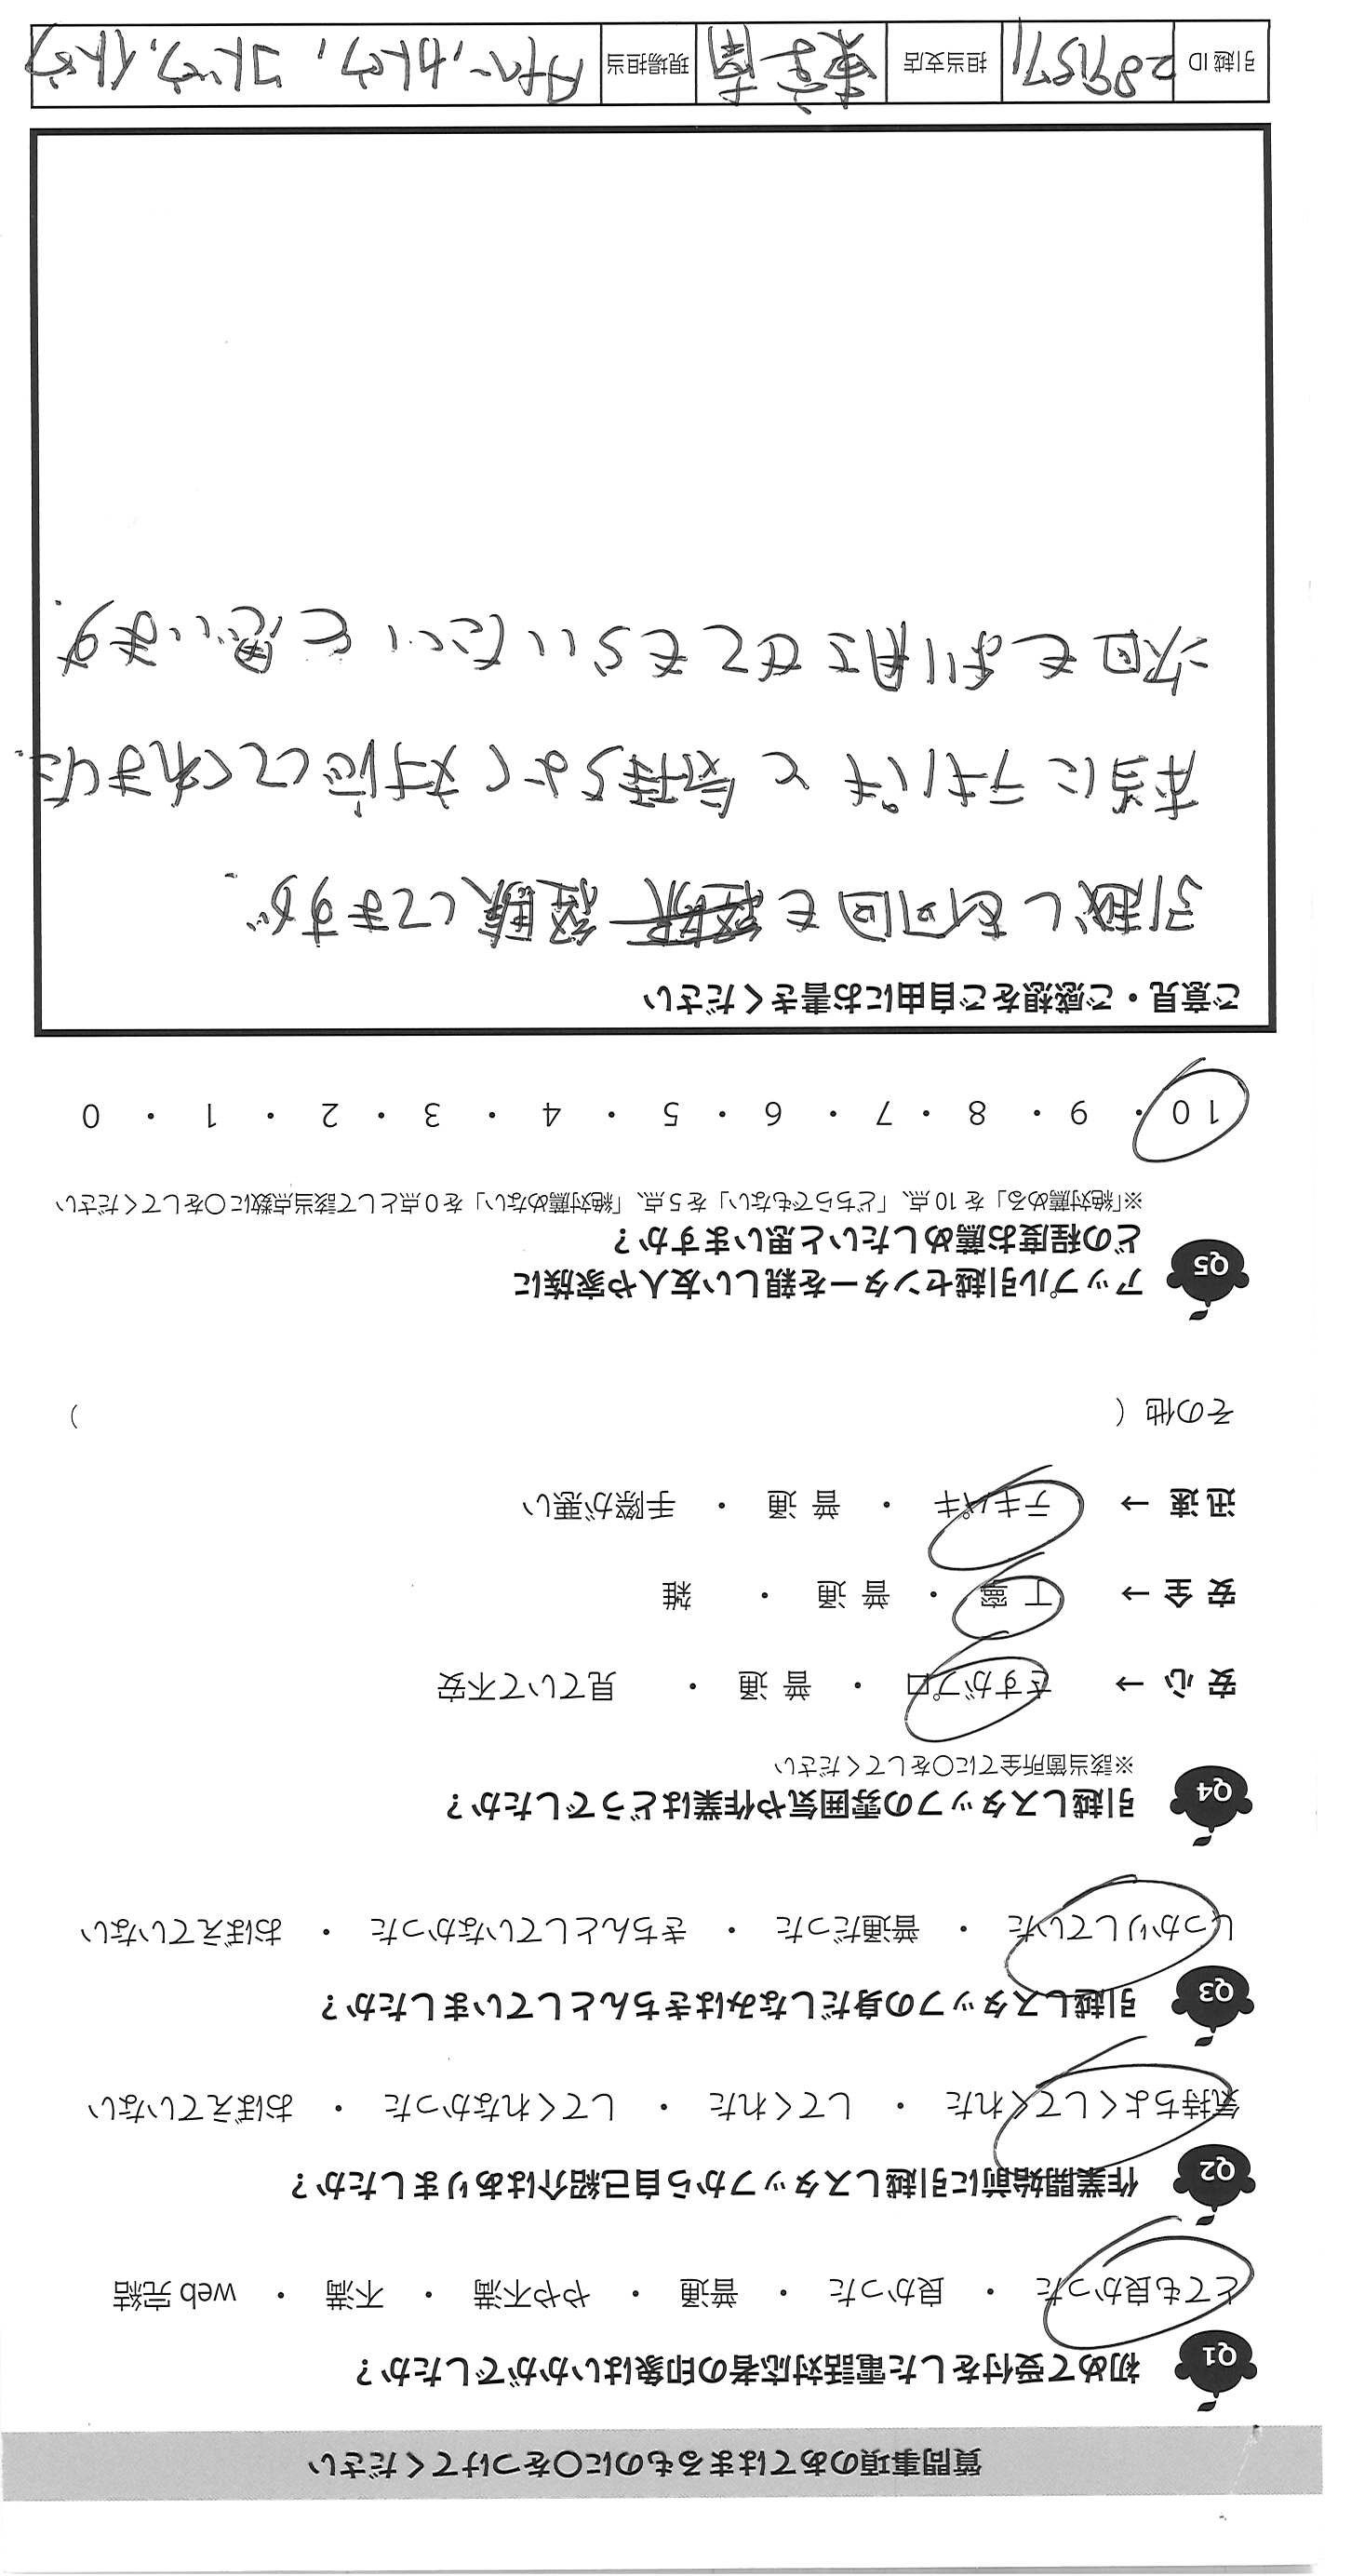 質問事項のあてはまるものに〇をつけてください
Q1 初めて受付をした電話対応者の印象はいかがでしたか？
とても良かった ・ 良かった ・ 普通 ・ やや不満 ・ 不満 ・ web 完結
Q2 作業開始前に引越しスタッフから自己紹介はありましたか？
気持ちよくしてくれた ・ してくれた ・ してくれなかった ・ おぼえていない
Q3 引越しスタッフの身だしなみはきちんとしていましたか？
しっかりしていた ・ 普通だった ・ きちんとしていなかった ・ おぼえていない
Q4 引越しスタッフの雰囲気や作業はどうでしたか？
※該当箇所全てに〇をしてください
安 心 → さすがプロ ・ 普 通 ・ 見ていて不安
安 全 → 丁 寧 ・ 普 通 ・ 雑
迅 速 → テキパキ ・ 普 通 ・ 手際が悪い
その他 （ ）
Q5 アップル引越センターを親しい友人や家族に
どの程度お薦めしたいと思いますか？
※「絶対薦める」を 10 点、「どちらでもない」を 5 点、「絶対薦めない」を 0 点として該当点数に〇をしてください
10 ・ 9 ・ 8 ・ 7 ・ 6 ・ 5 ・ 4 ・ 3 ・ 2 ・ 1 ・ 0
ご意見・ご感想をご自由にお書きください
引越しを何回も経験してますが、
本当にテキパキと気持ちよく対応してくれました。
次回も利用させてもらいたいと思います。
引越 ID 2891571 担当支店 現場担当